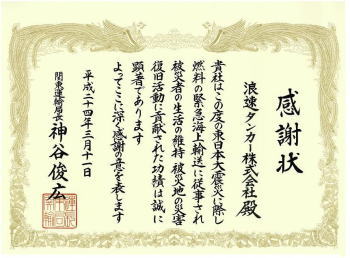 感謝状
浪速タンカー株式会社殿
貴社はこの度の東日本大震災に際し
燃料の緊急海上輸送に従事され
被災者の生活の維持 被災地の災害
復旧活動に貢献された功績は誠に
顕著であります
よってここに深く感謝の意を表します
平成二十四年三月十一日
関東運輸局長 神谷俊広